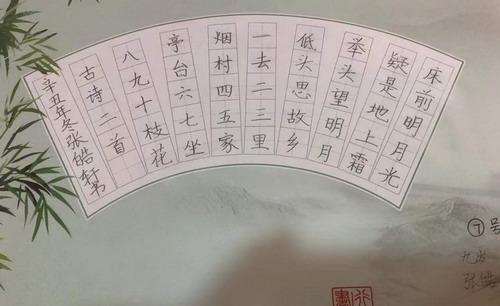 床前明月光
疑是地上霜
举头望明月
低头思故乡
一去二三里
烟村四五家
亭台六七坐
八九十枝花
古诗二首
辛丑年冬张皓轩书
7号
九岁
张皓